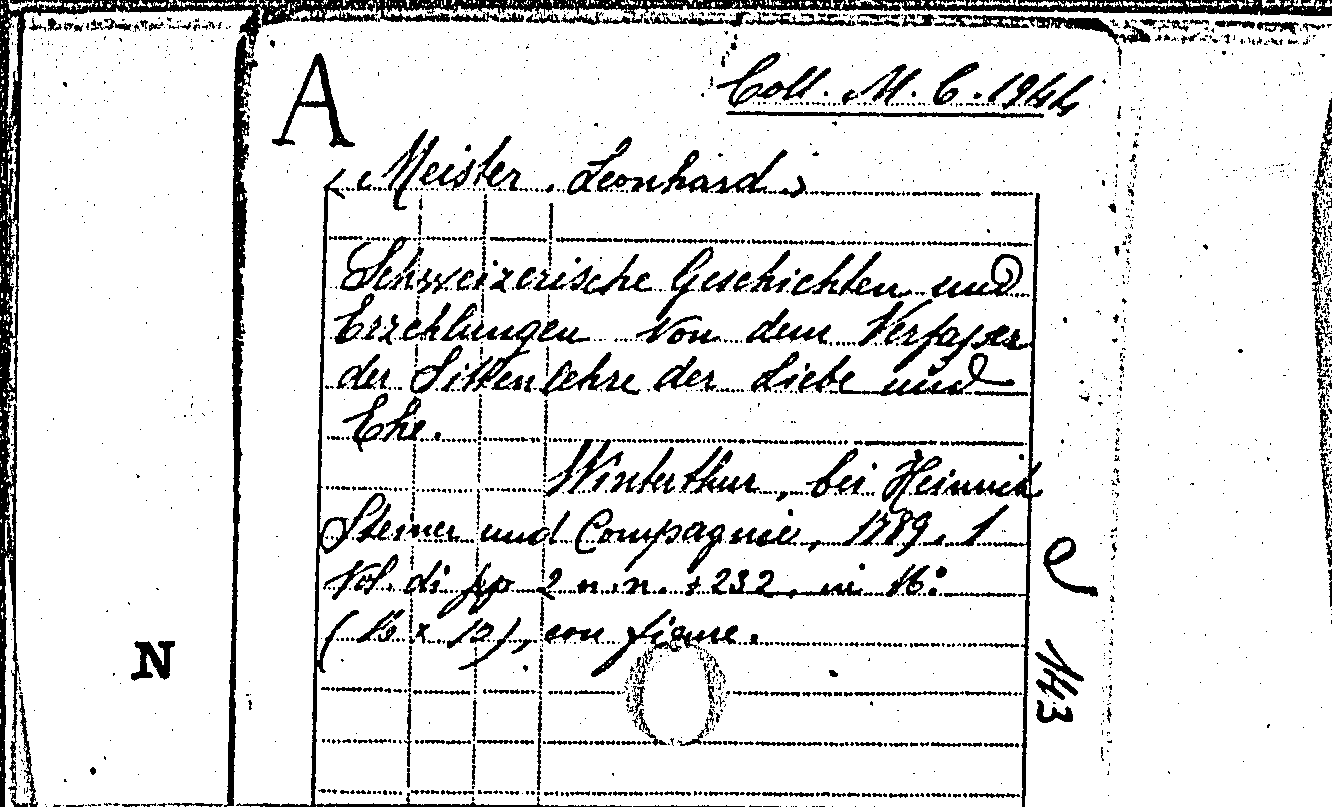 A
Coll. M. C. 1944
<Meister, Leonhard>
Schweizerische Geschichten und
Erzehlungen von dem Verfasser
der Sittenlehre der Liebe und
Ehe.
Winterthur, bei Heinrich
Steiner und Compagnie, 1789. 1
Vol. di pp 2 n.n. + 232. in 16°
(16 x 10), con figure.
e 143
N